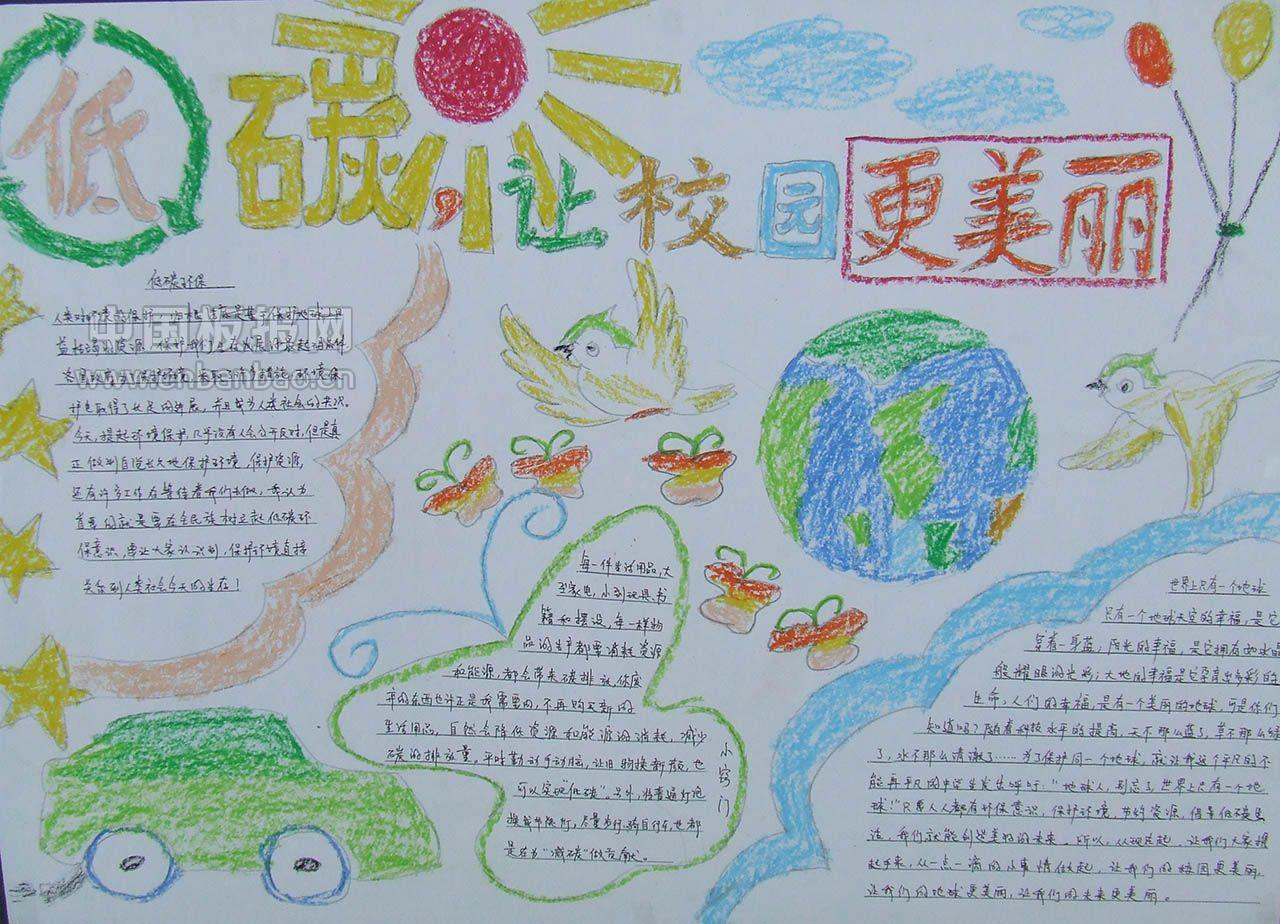 低碳，让校园更美丽
低碳环保
中国板报网
www.chbanbao.cn
护也取得了长足的进展，并且成为人类社会的共识。
今天，提起环境保护，几乎没有人会公开反对，但是真
正做到自觉长久地保护环境，保护资源，
还有许多工作在等待着我们去做，我认为
首要的就是要在全民族树立起低碳环
保意识，要让大家认识到，保护环境直接
关系到人类社会今天的生存！
每一件生活用品，大
到家电，小到玩具书
籍和摆设，每一样物
品的生产都要消耗资源
和能源，都会带来碳排放，你废
弃的东西也许正是我需要的，不再购买新的
生活用品，自然会降低资源和能源的消耗，减少
碳的排放量。平时勤动手动脑，让旧物换新颜，也
可以实现"低碳"。另外，将普通灯泡
换成节能灯，尽量步行、骑自行车，也都
是在为"减碳"做贡献。
小窍门
世界上只有一个地球
只有一个地球天空的幸福，是它
穿着一身蓝；阳光的幸福，是它拥有如水晶
般耀眼的光彩；大地的幸福是它孕育出多彩的
生命，人们的幸福，是有一个美丽的地球，可是你们
知道吗？随着科技水平的提高，天不那么蓝了，草不那么绿
了，水不那么清澈了……为了保护同一个地球，就让我这个平凡的不
能再平凡的中学生发出呼吁："地球人，别忘了，世界上只有一个地
球！"只要人人都有环保意识，保护环境，节约资源，倡导低碳生
活，我们就能创造美好的未来。所以，从现在起，让我们大家携
起手来，从一点一滴的小事情做起，让我们的校园更美丽，
让我们的地球更美丽，让我们的未来更美丽。